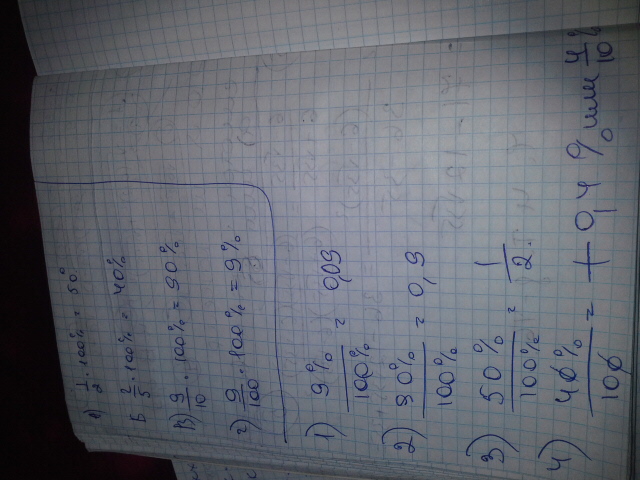 а) 1/2 · 100% = 50%
Б 2/5 · 100% = 40%
В) 9/10 · 100% = 90%
г) 9/100 · 100% = 9%
1) 9%/100% = 0,09
2) 90%/100% = 0,9
3) 50%/100% = 1/2.
4) 40%/100 = 0,4 % или 4/10 %